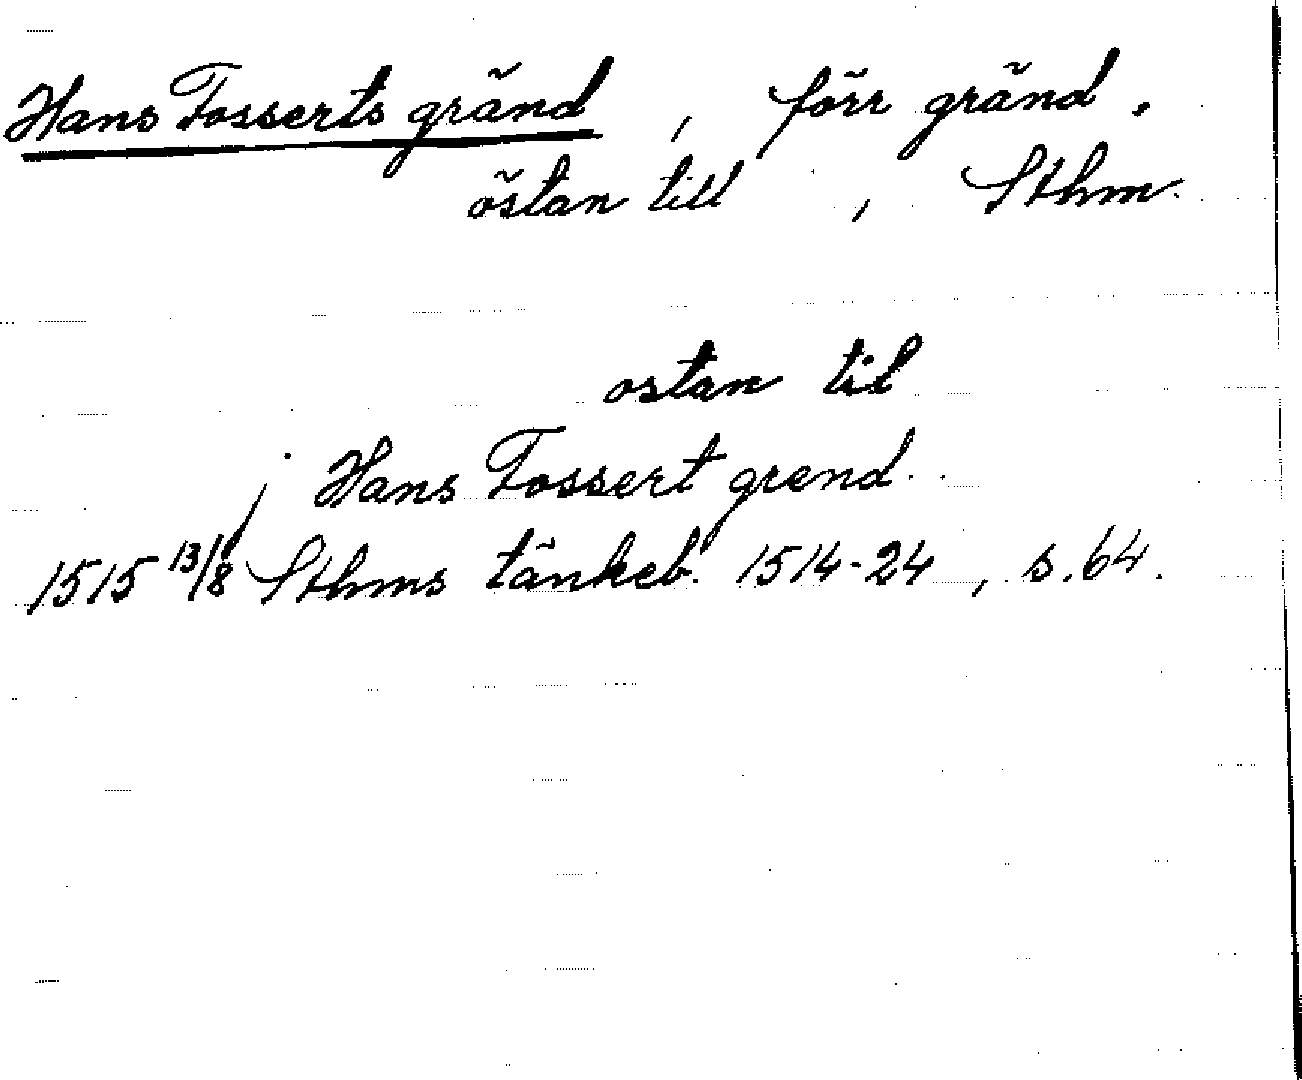 Hans Fosserts gränd, förr gränd.
östan till, Sthm.
ostan til
j Hans Fossert grend
1515 13/8 Sthms tänkeb. 1514-24, s. 64.